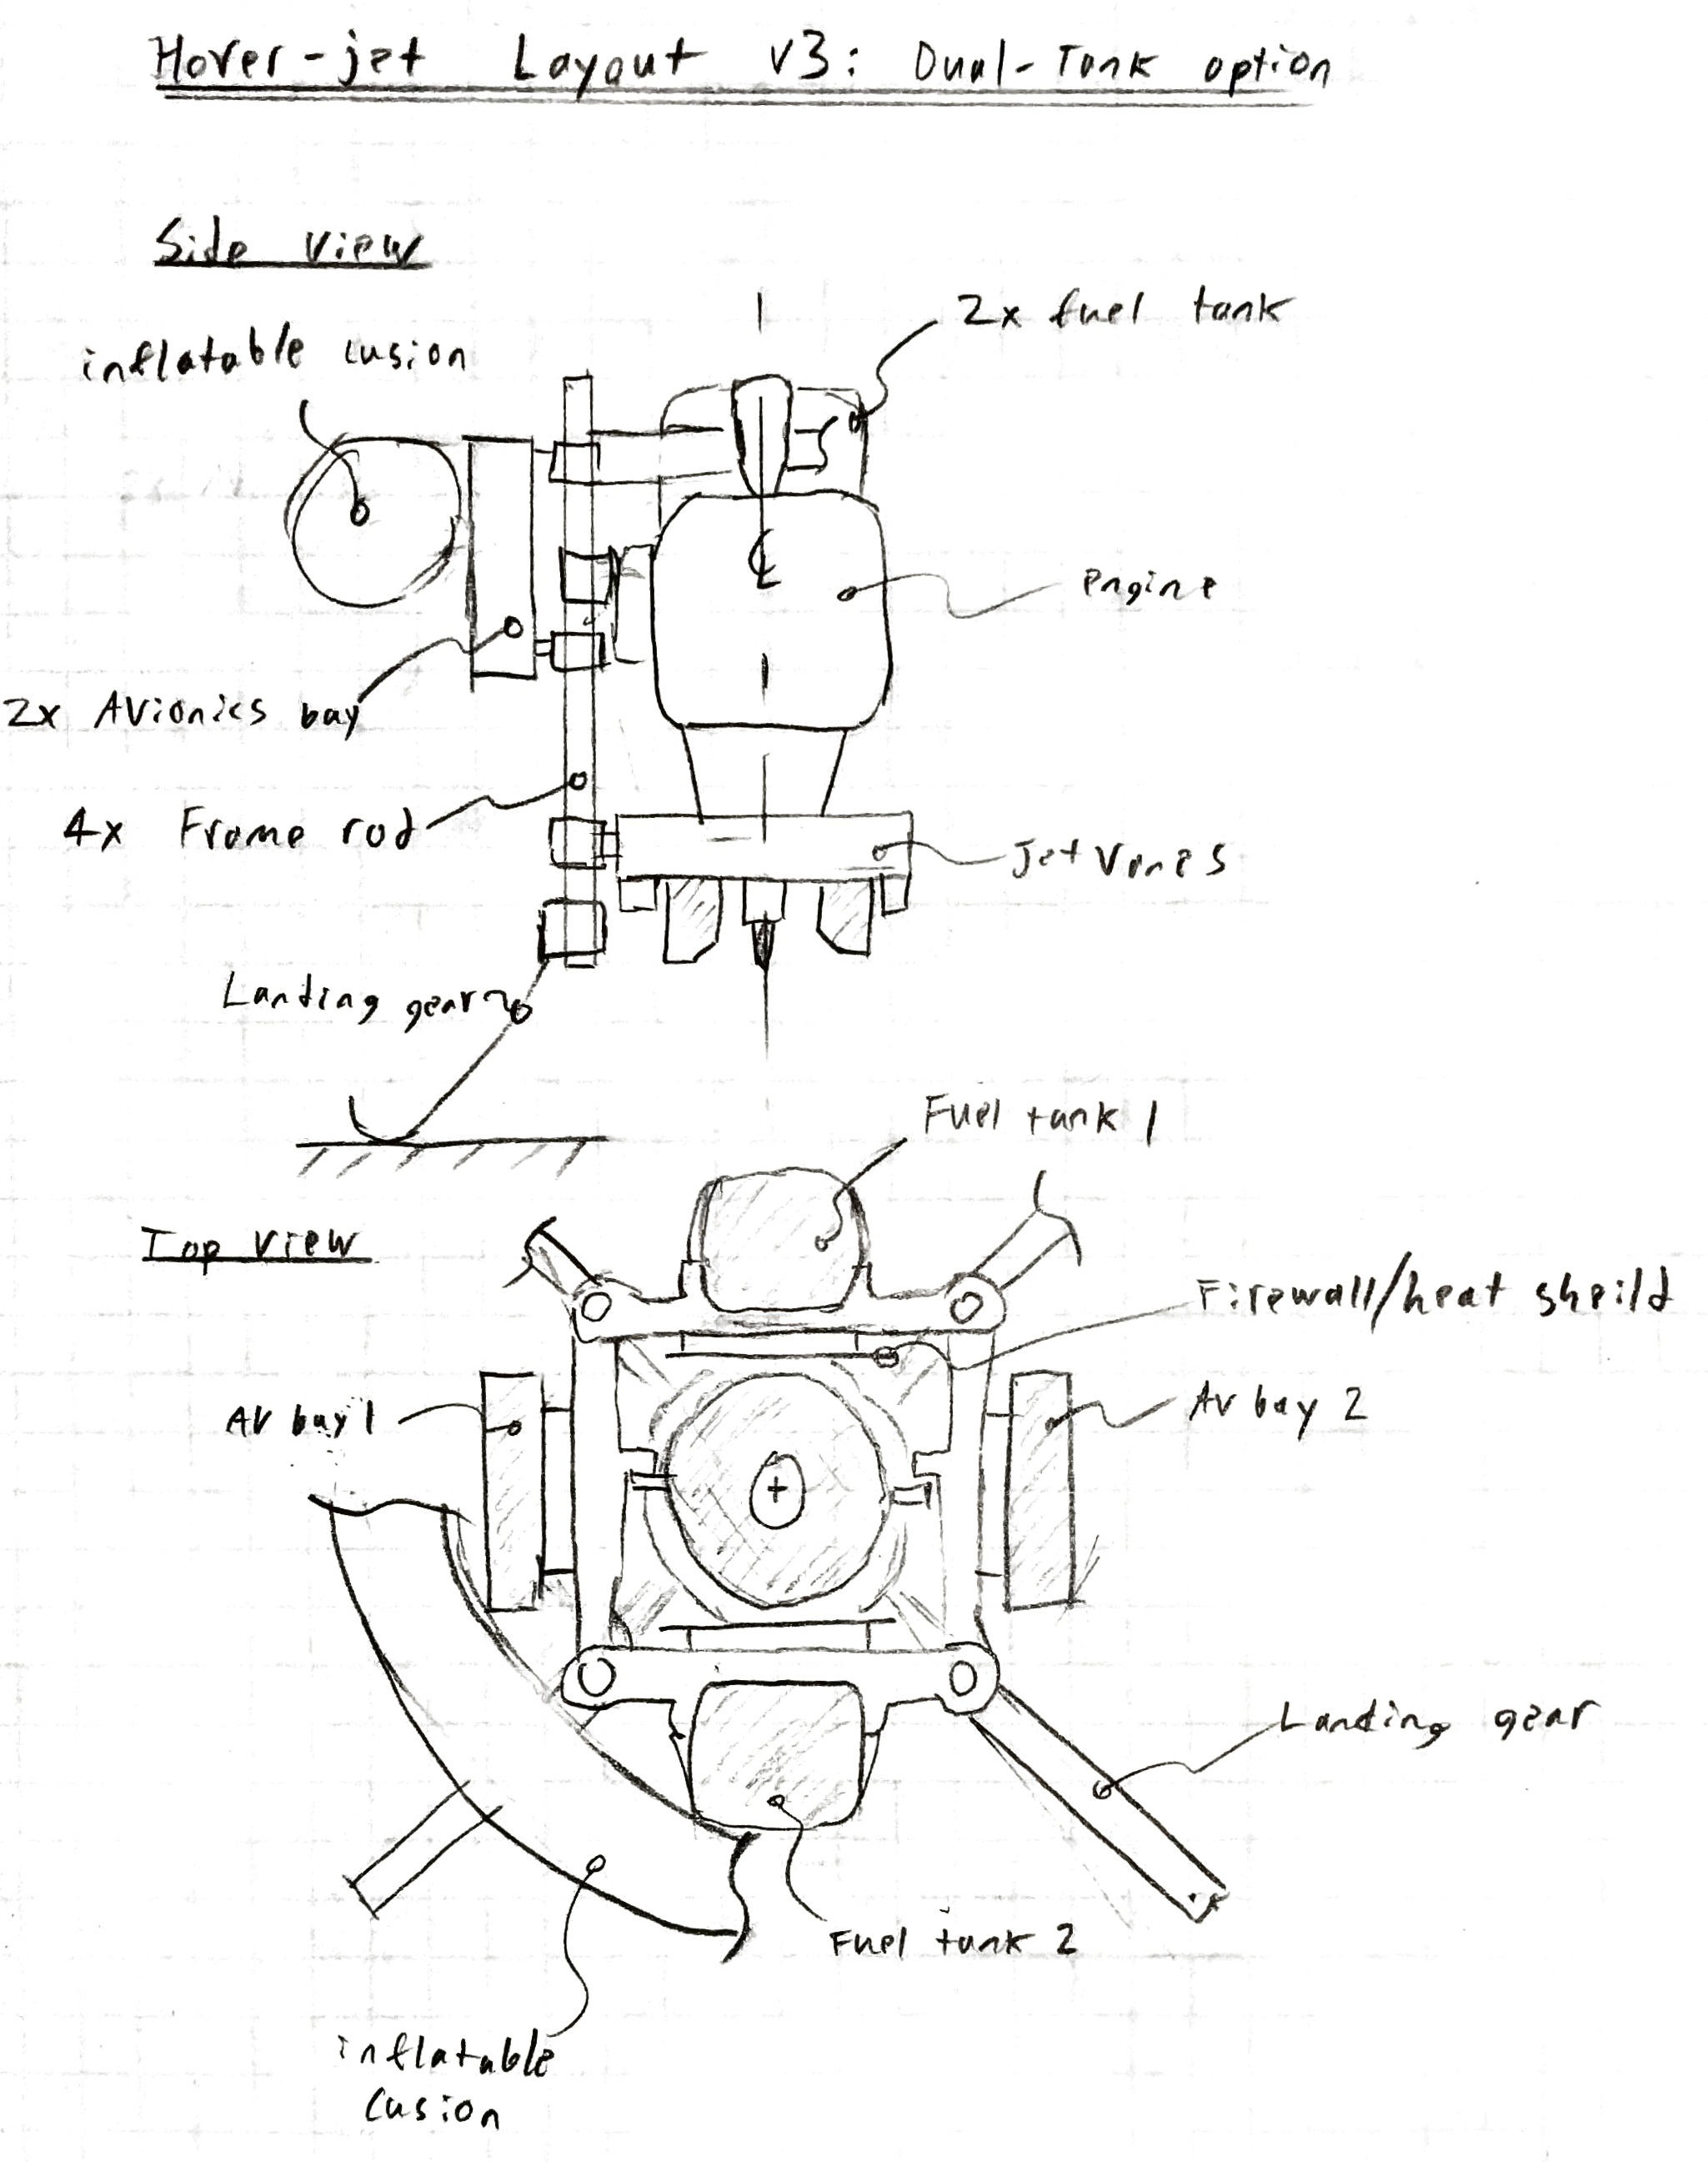 Hover-jet Layout v3: Dual-Tank option
Side view
2x fuel tank
inflatable cusion
℄
engine
2x Avionics bay
4x Frame rod
Jet vanes
Landing gear
Fuel tank 1
Top view
Firewall/heat sheild
AV bay 1
AV bay 2
Landing gear
Fuel tank 2
inflatable
cusion